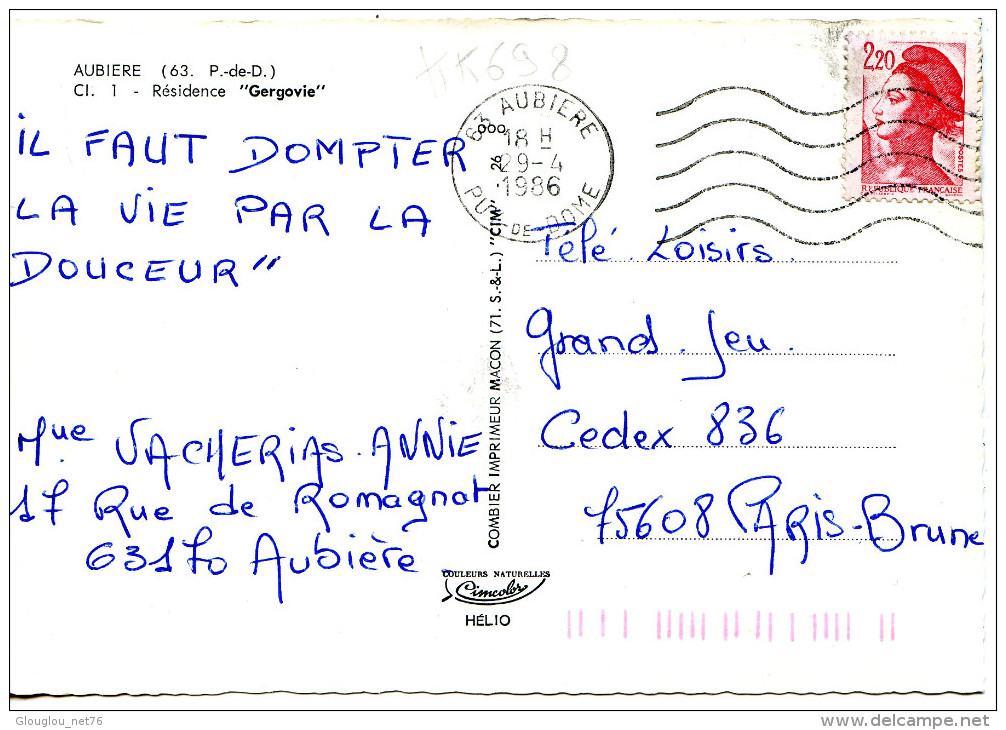 AUBIERE (63. P.-de-D.)
Cl. 1 - Résidence "Gergovie"
KK698
63 AUBIERE
18 H
29-4
1986
PUY-DE-DOME
2,20
POSTES
REPUBLIQUE FRANÇAISE
IL FAUT DOMPTER
LA VIE PAR LA
DOUCEUR"
Mlle VACHERIAS. ANNIE
17 Rue de Romagnat
63170 Aubière
COMBIER IMPRIMEUR MACON (71. S.-&-L.) "CIM"
Télé. Loisirs.
Grand. Jeu.
Cedex 836
75608 PARIS-Brune
COULEURS NATURELLES
Cimcolor
HÉLIO
Glouglou_net76
delcampe.net